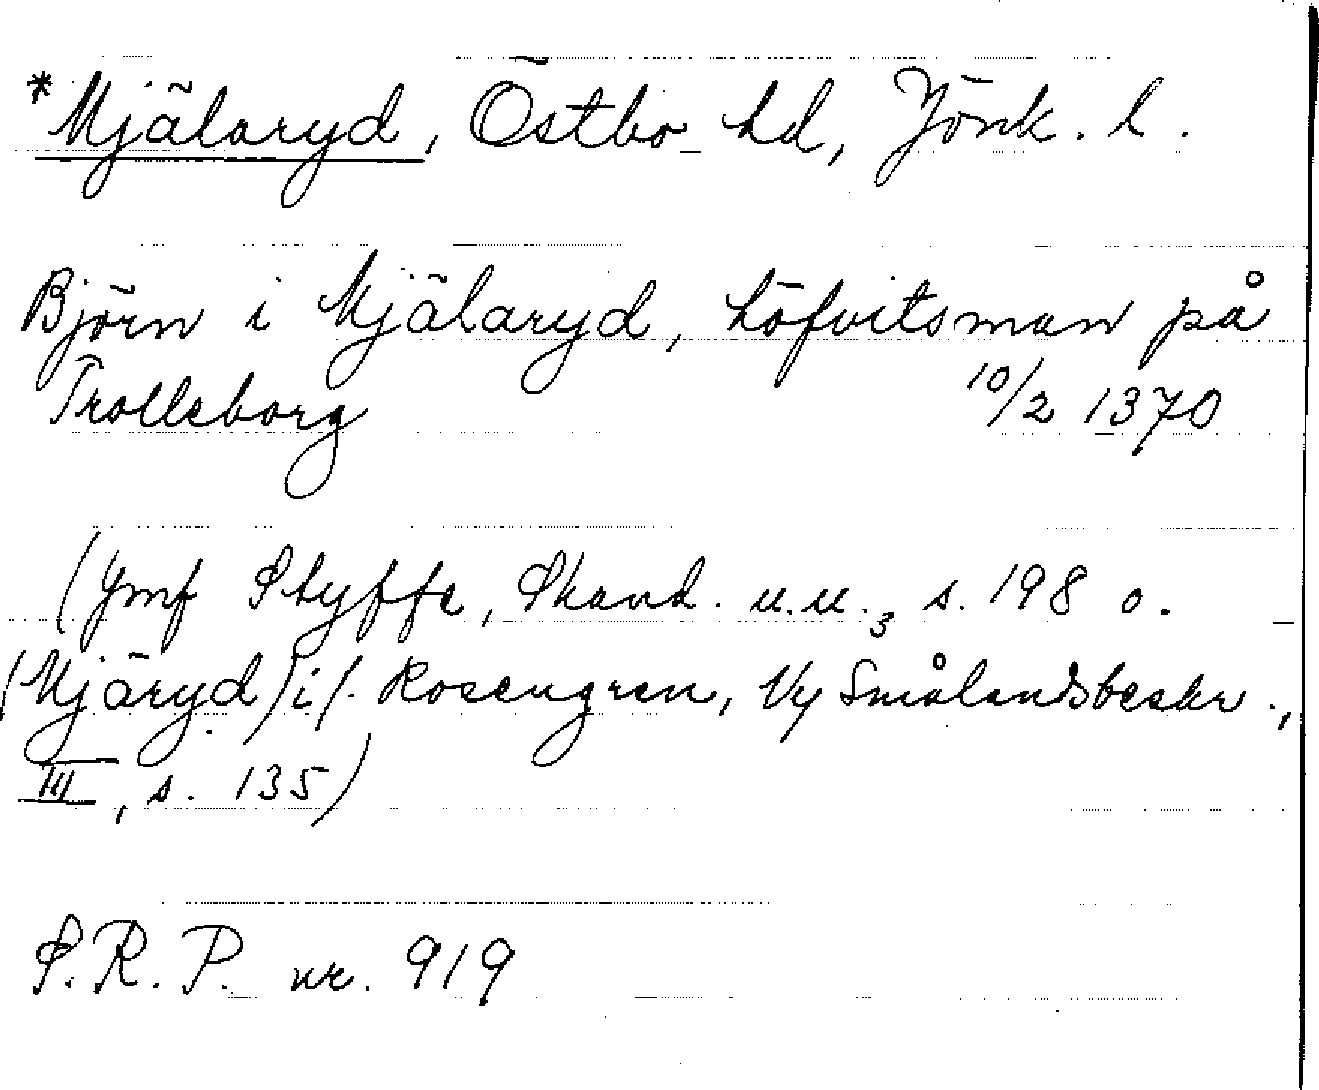 *Mjälaryd, Östbo hd, Jönk. l.
Björn i Mjälaryd, höfvitsman på
Trolleborg 10/2 1370
(Jmf Styffe, Skand. u.u.3 s. 198 o.
(Mjäryd) i /. Rosengren, Ny Smålandsbeskr.,
III, s. 135)
S.R.P. nr. 919